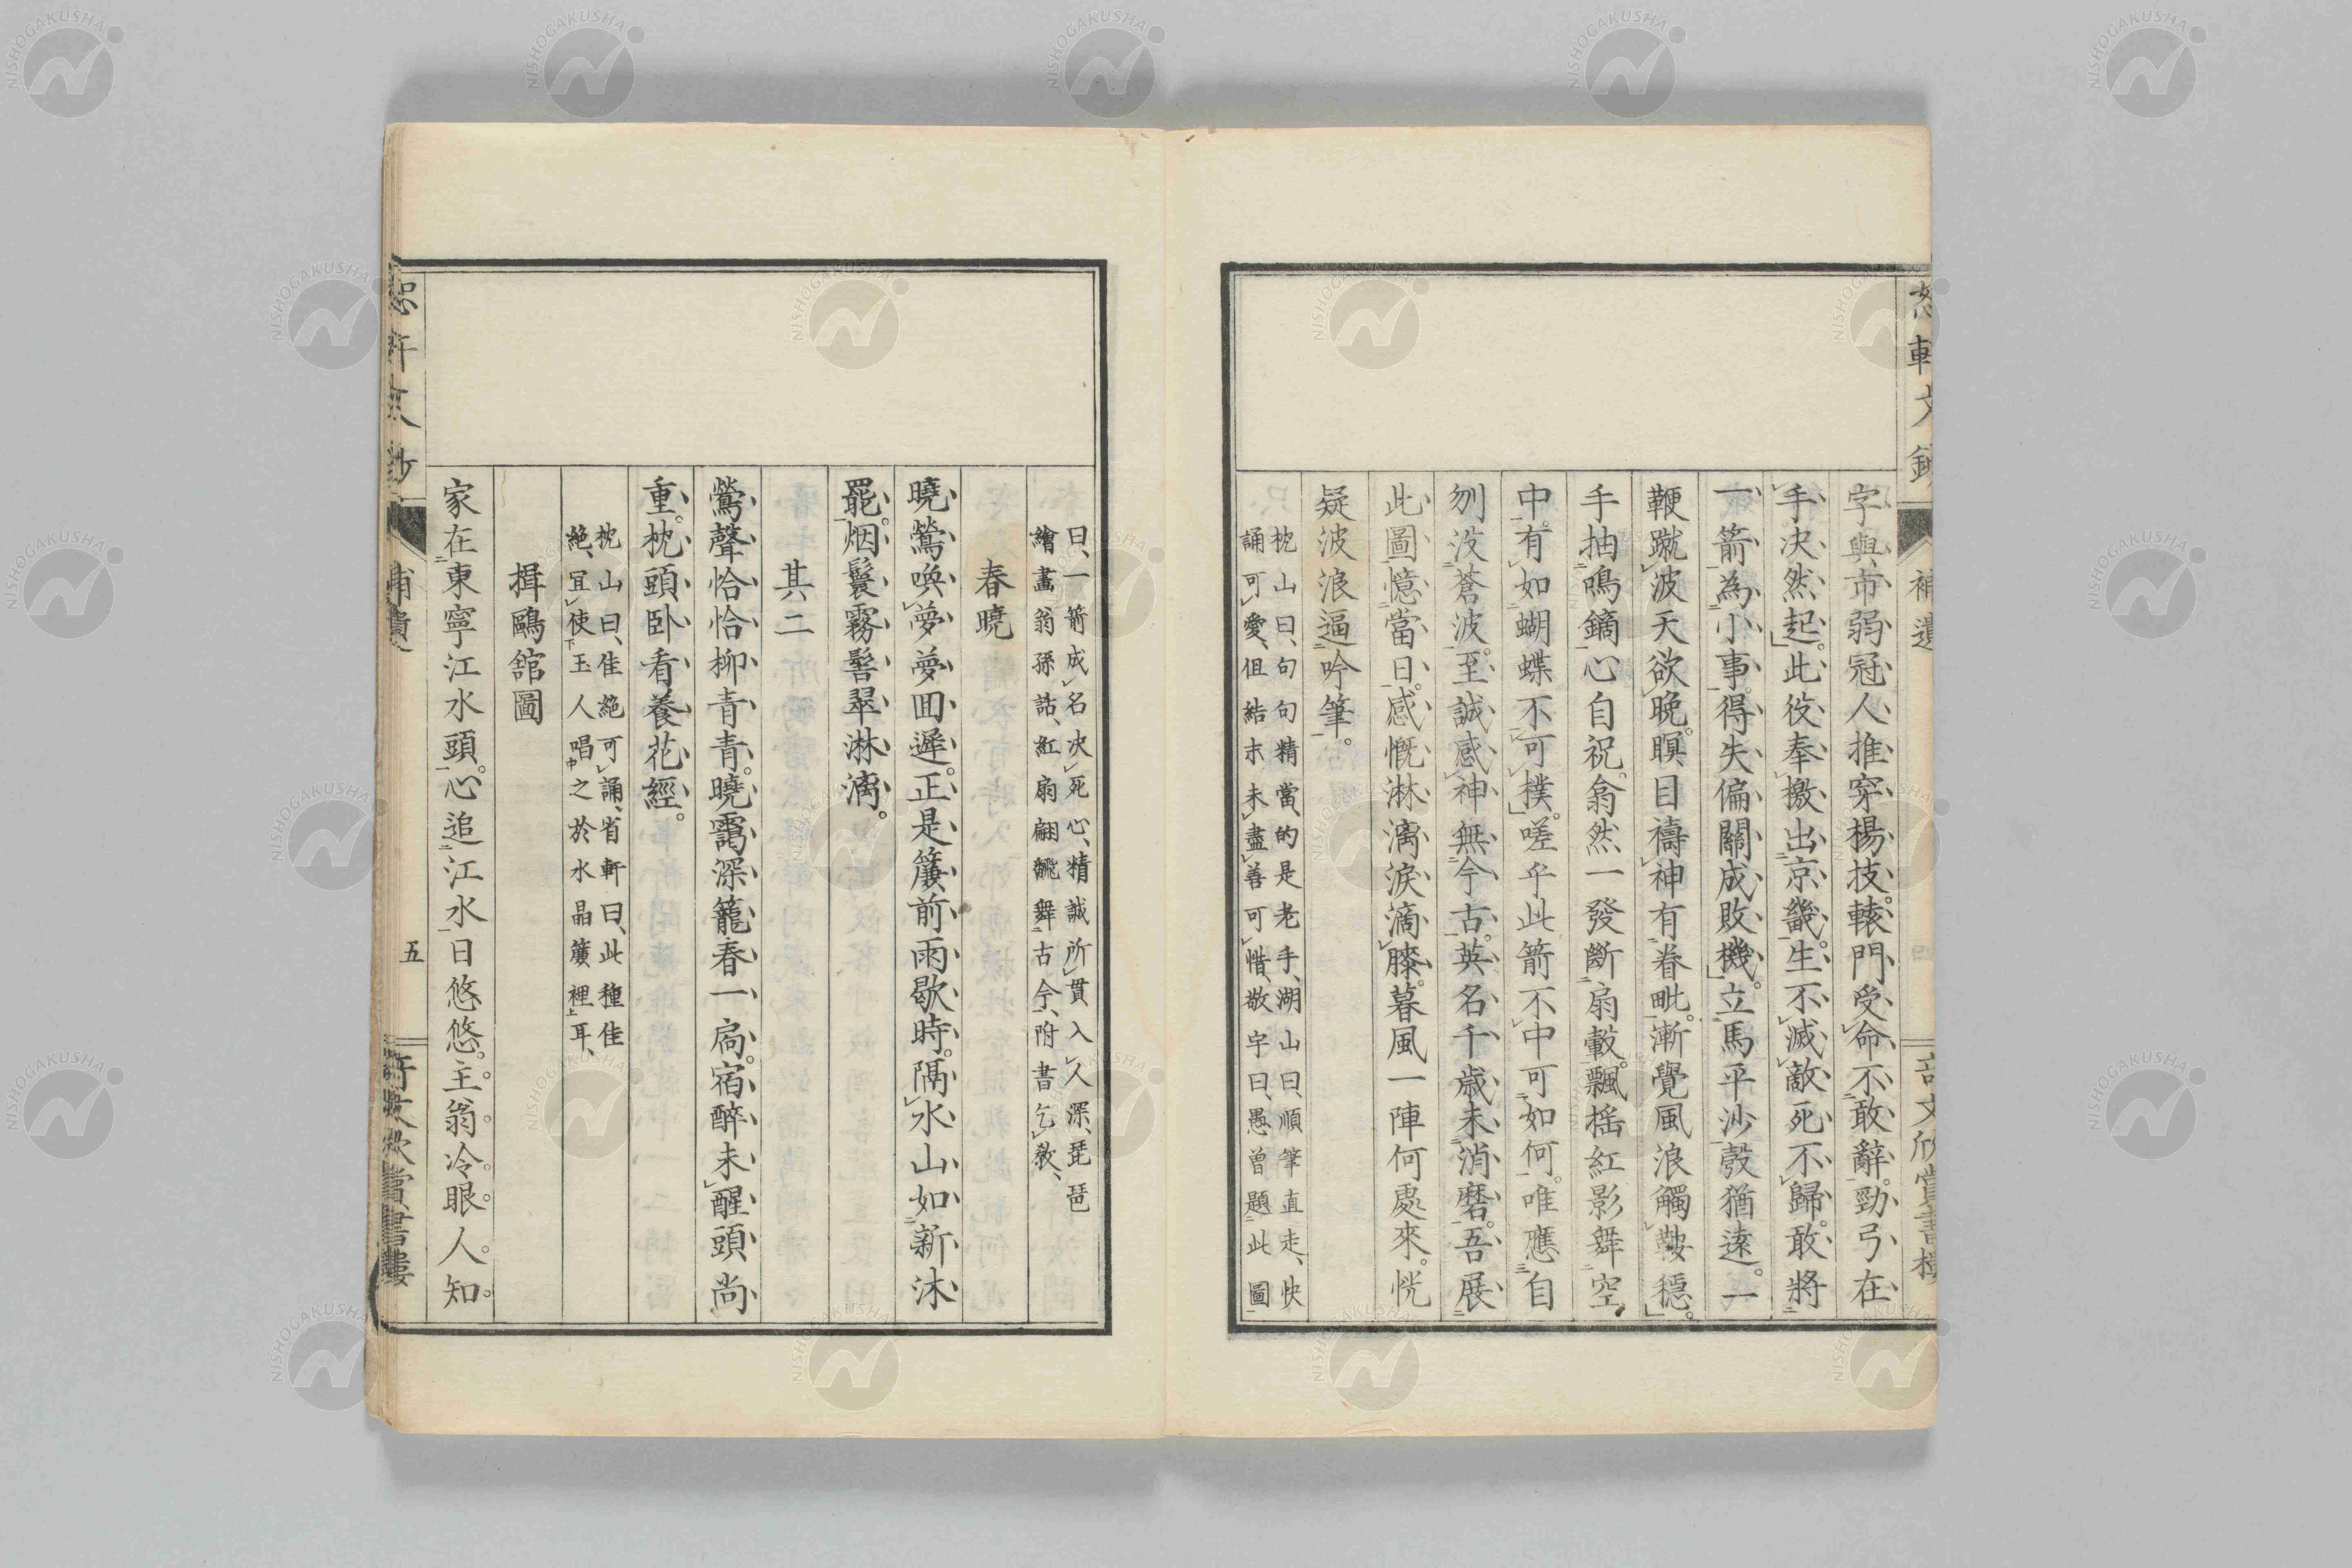 恕軒文鈔 補遺 奇文欣賞書樓
字與市弱冠人推穿楊技。轅門受命不敢辭。勁弓在
手决然起。此役奉檄出京畿。生不滅敵死不歸。敢將
一箭為小事。得失偏關成敗機。立馬平沙彀猶遠。一
鞭蹴波天欲晚。瞑目禱神有眷毗。漸覺風浪觸鞍穩。
手抽鳴鏑心自祝。翕然一發斷扇轂。飄搖紅影舞空
中。有如蝴蝶不可撲。嗟乎此箭不中可如何。唯應自
刎沒蒼波。至誠感神無今古。英名千歲未消磨。吾展
此圖憶當日。感慨淋漓淚滴膝。暮風一陣何處來。恍
疑波浪逼吟筆。
枕山曰、句句精當、的是老手、湖山曰、順筆直走、快
誦可愛、但結末未盡善可惜、敬宇曰、愚曾題此圖
曰、一箭成名决死心、精誠所貫入人深、琵琶
繪畫翁孫話、紅扇翩翻舞古今、附書乞敎、
春曉
曉鶯喚夢夢囬遲。正是簾前雨歇時。隔水山如新沐
罷。烟鬟霧髻翠淋漓。
其二
鶯聲恰恰柳青青。曉靄深籠春一扃。宿醉未醒頭尚
重。枕頭卧看養花經。
枕山曰、佳絕可誦、省軒曰、此種佳
絕、宜使玉人唱之於水晶簾裡耳、
揖鷗舘圖
家在東寧江水頭。心追江水日悠悠。主翁冷眼人知
恕軒文鈔 補遺 五 奇文欣賞書樓